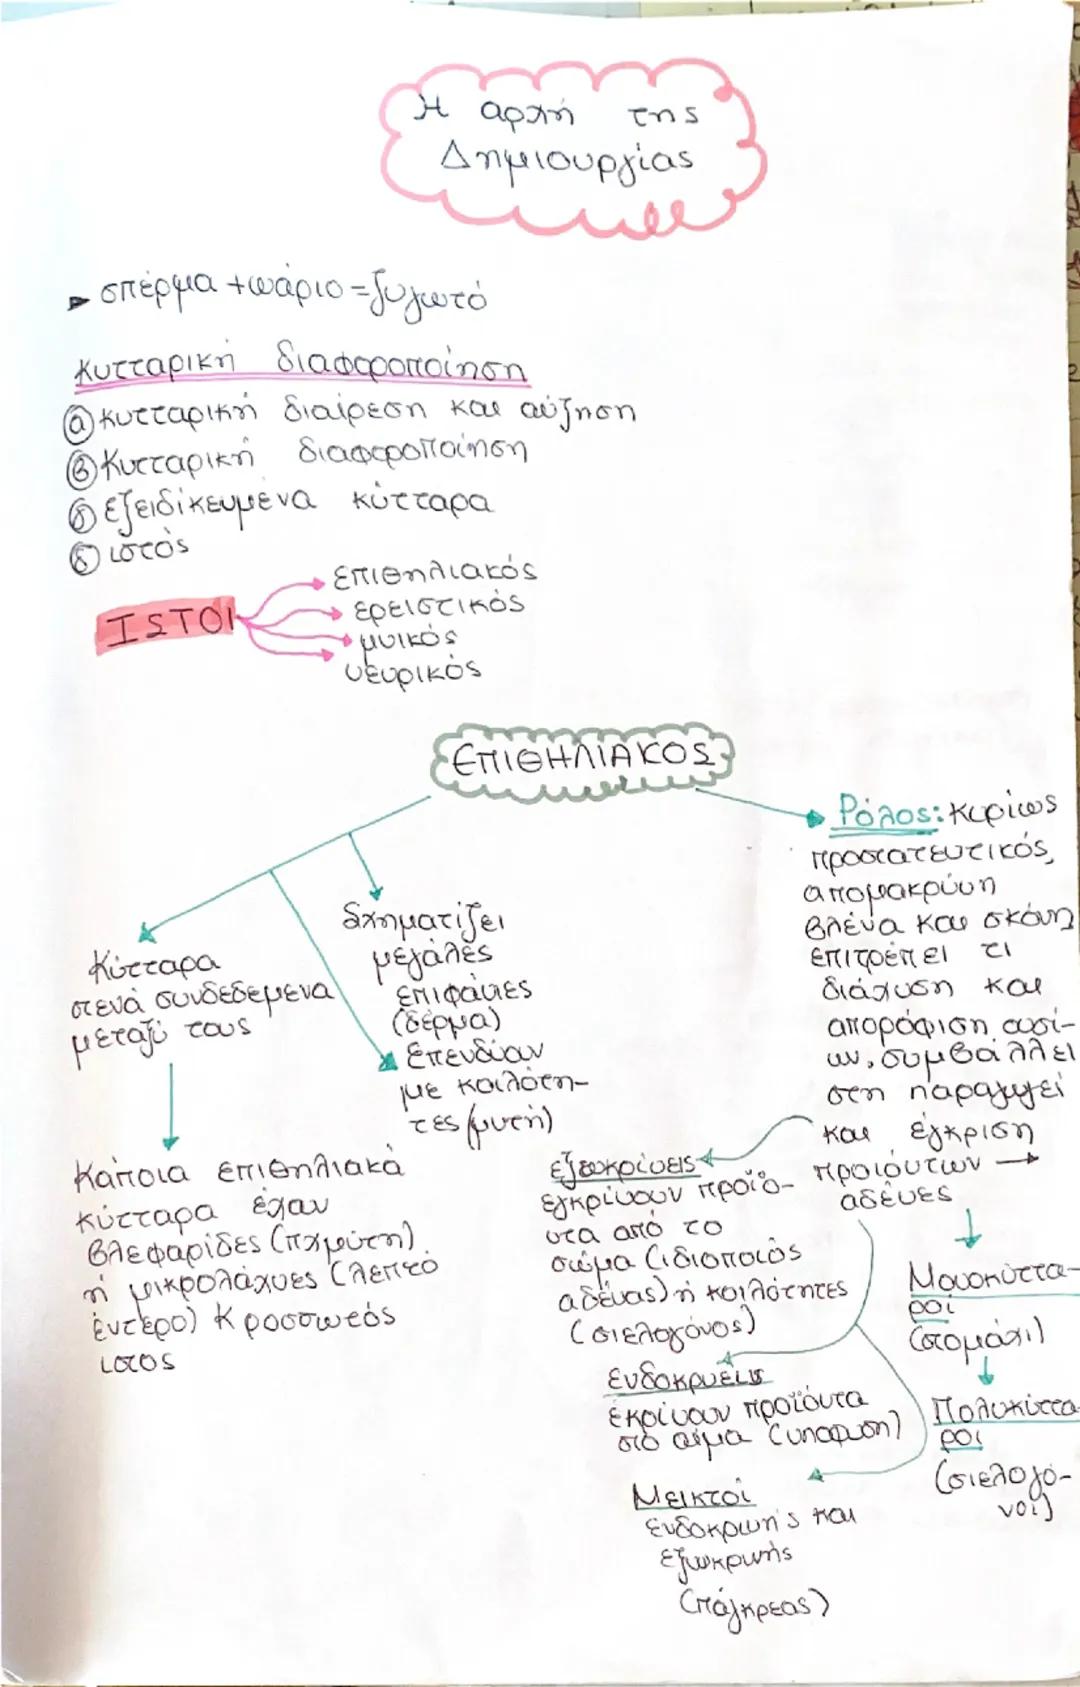 Η αρχή της
Δημιουργίας
σπέρμα + ωάριο = ζυγωτό
Κυτταρική διαφοροποίηση
α κυτταρική διαίρεση και αύξηση
β Κυτταρική διαφοροποίηση
γ εξειδίκευμένα κύτταρα
δ ιστός
ΙΣΤΟΙ
επιθηλιακός
ερειστικός
μυικός
νευρικός
ΕΠΙΘΗΛΙΑΚΟΣ
Κύτταρα
στενά συνδεδεμένα
μεταξύ τους
Κάποια επιθηλιακά
κύτταρα έχουν
βλεφαρίδες
ή μικρολάχνες (λεπτό
έντερο) Κροσσωτός
ιστος
Σχηματίζει
μεγάλες
επιφάνιες
(δέρμα)
Επενδύουν
με κοιλότη-
τες (μυτη)
Ρόλος: κυρίως
προστατευτικός,
απομακρύνη
βλένα και σκόνη
επιτρέπει τι
διάχυση και
απορόφιση ουσί-
ων, συμβάλλει
στη παραγωγεί
και έγκριση
προιόντων →
αδένες
εξωκρίνεις
εγκρίνουν προϊό-
ντα από το
σώμα (ιδιοποιός
αδένας) ή κοιλότητες
(σιελογόνος)
ενδοκρυείς
εκρίνουν προϊόντα
στο αίμα (υποφυση)
Μεικτοί
ενδοκρωής και
εξωκρωής
(πάγκρεας)
Μονοκύττα-
ροί
(στομάχι)
Πολυκύττα-
ροι
(σιελογό-
νοι)